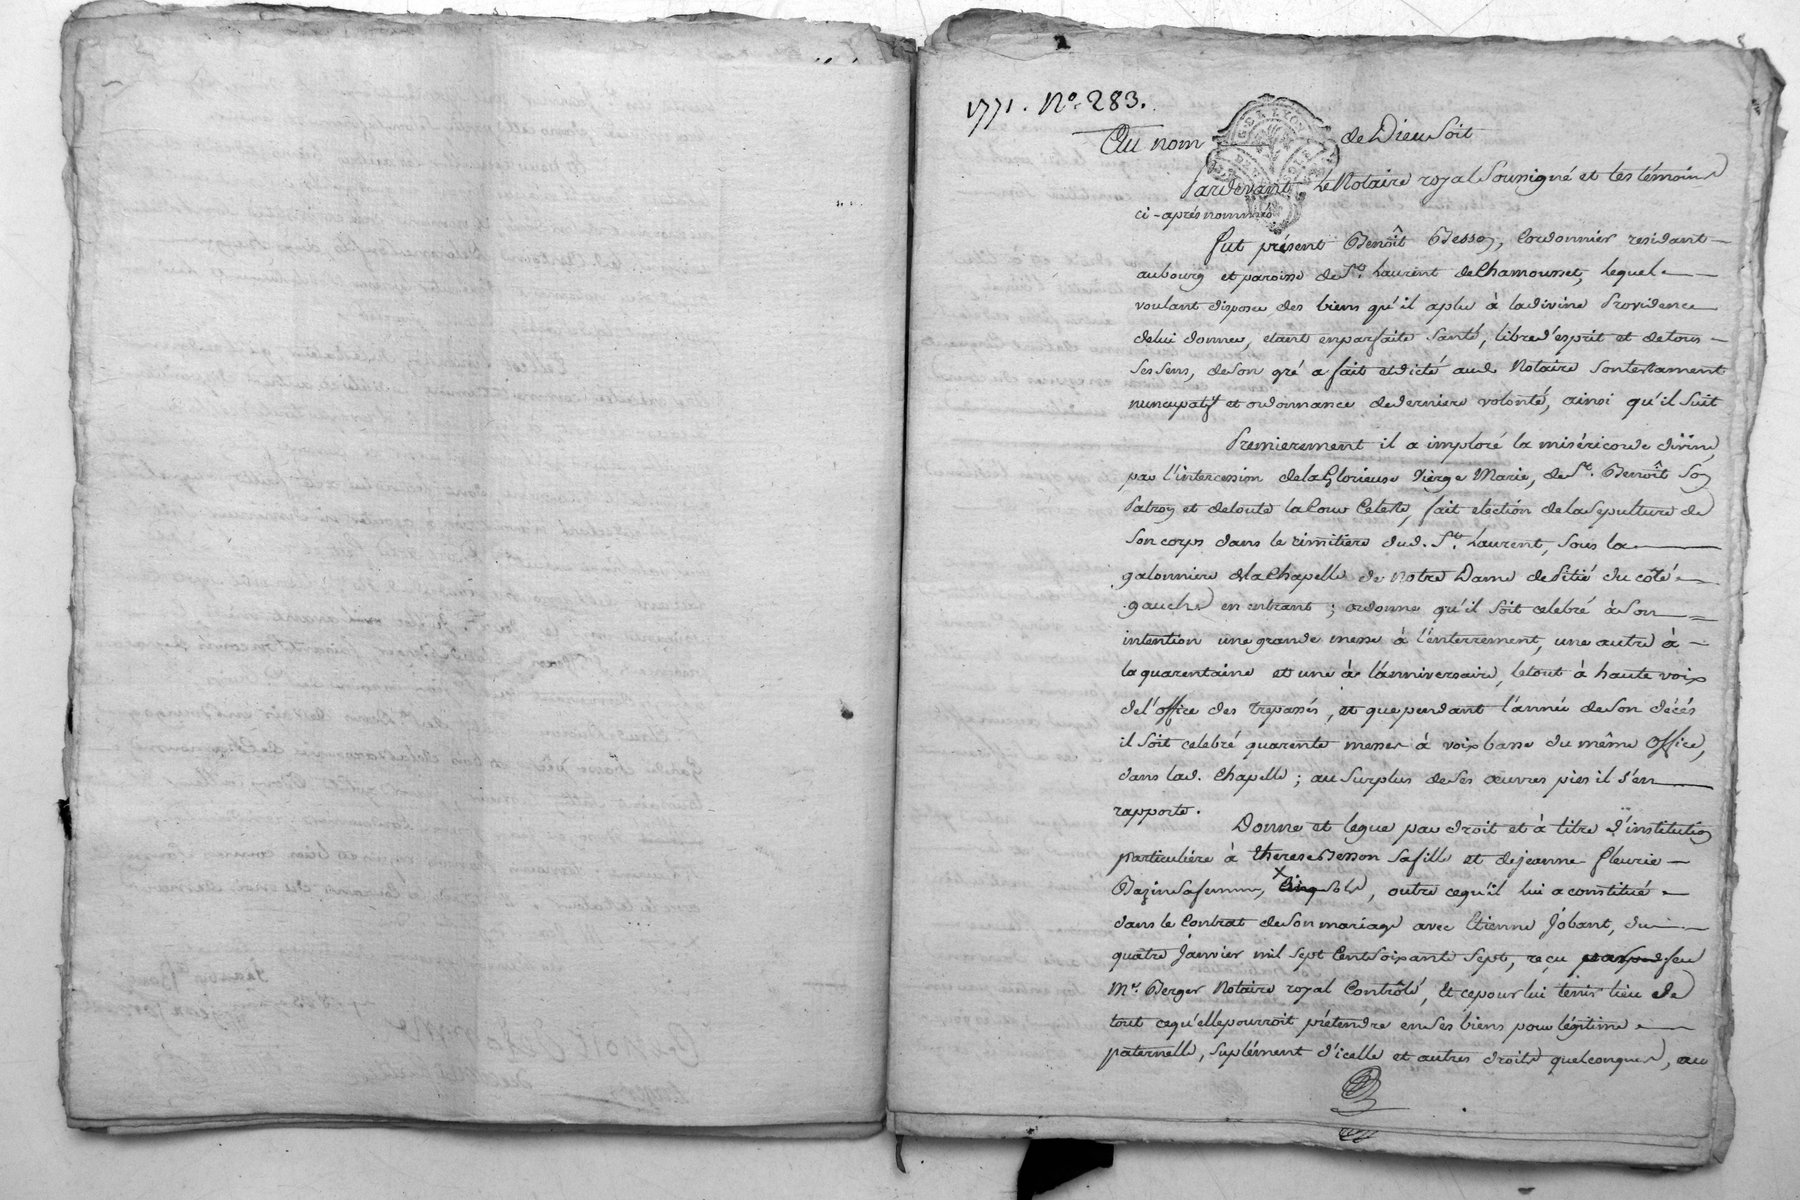 1771. No. 283.
Au nom de Dieu soit
Pardevant Le Notaire royal soussigné et les témoins
ci-après nommés
fut présent Benoît Besson, Cordonnier residant
au bourg et paroisse de St. Laurent de Chamousset, Lequel
voulant disposer des biens qu'il a plu à la divine Providence
de lui donner, etant en parfaite santé, libre d'esprit et de tous
ses sens, de son gré a fait et dicté aud. Notaire son testament
nuncupatif et ordonnance de derniere volonté, ainsi qu'il suit
Premierement il a imploré la miséricorde divine,
par l'intercession de la Glorieuse Vierge Marie, de St. Benoît son
Patron et de toute la Cour Celeste, fait election de la sepulture de
son corps dans le cimitiere dud. St. Laurent, sous la
galonniere de la Chapelle de Notre Dame de Pitié du côté
gauche en entrant; ordonne qu'il soit celebré à son
intention une grande messe à l'enterrement, une autre à
la quarentaine et une à l'anniversaire, le tout à haute voix
de l'office des trepassés, et que pendant l'année de son décés
il soit celebré quarente messes à voix basse du même office,
dans lad. Chapelle; au surplus de ses œuvres pies il s'en
rapporte.
Donne et legue par droit et à titre d'institution
particuliére à therese Besson sa fille et de jeanne fleurie
Bazin sa femme, Cinq sols, outre ce qu'il lui a constitué
dans le Contrat de son mariage avec Etienne Jobant, du
quatre Janvier mil sept Cent soixante sept, reçu feu
Me. Berger Notaire royal Contrôlé, Et ce pour lui tenir lieu de
tout ce qu'elle pourroit prétendre en ses biens pour légitime
paternelle, suplément d'icelle et autres droits quelconques, au